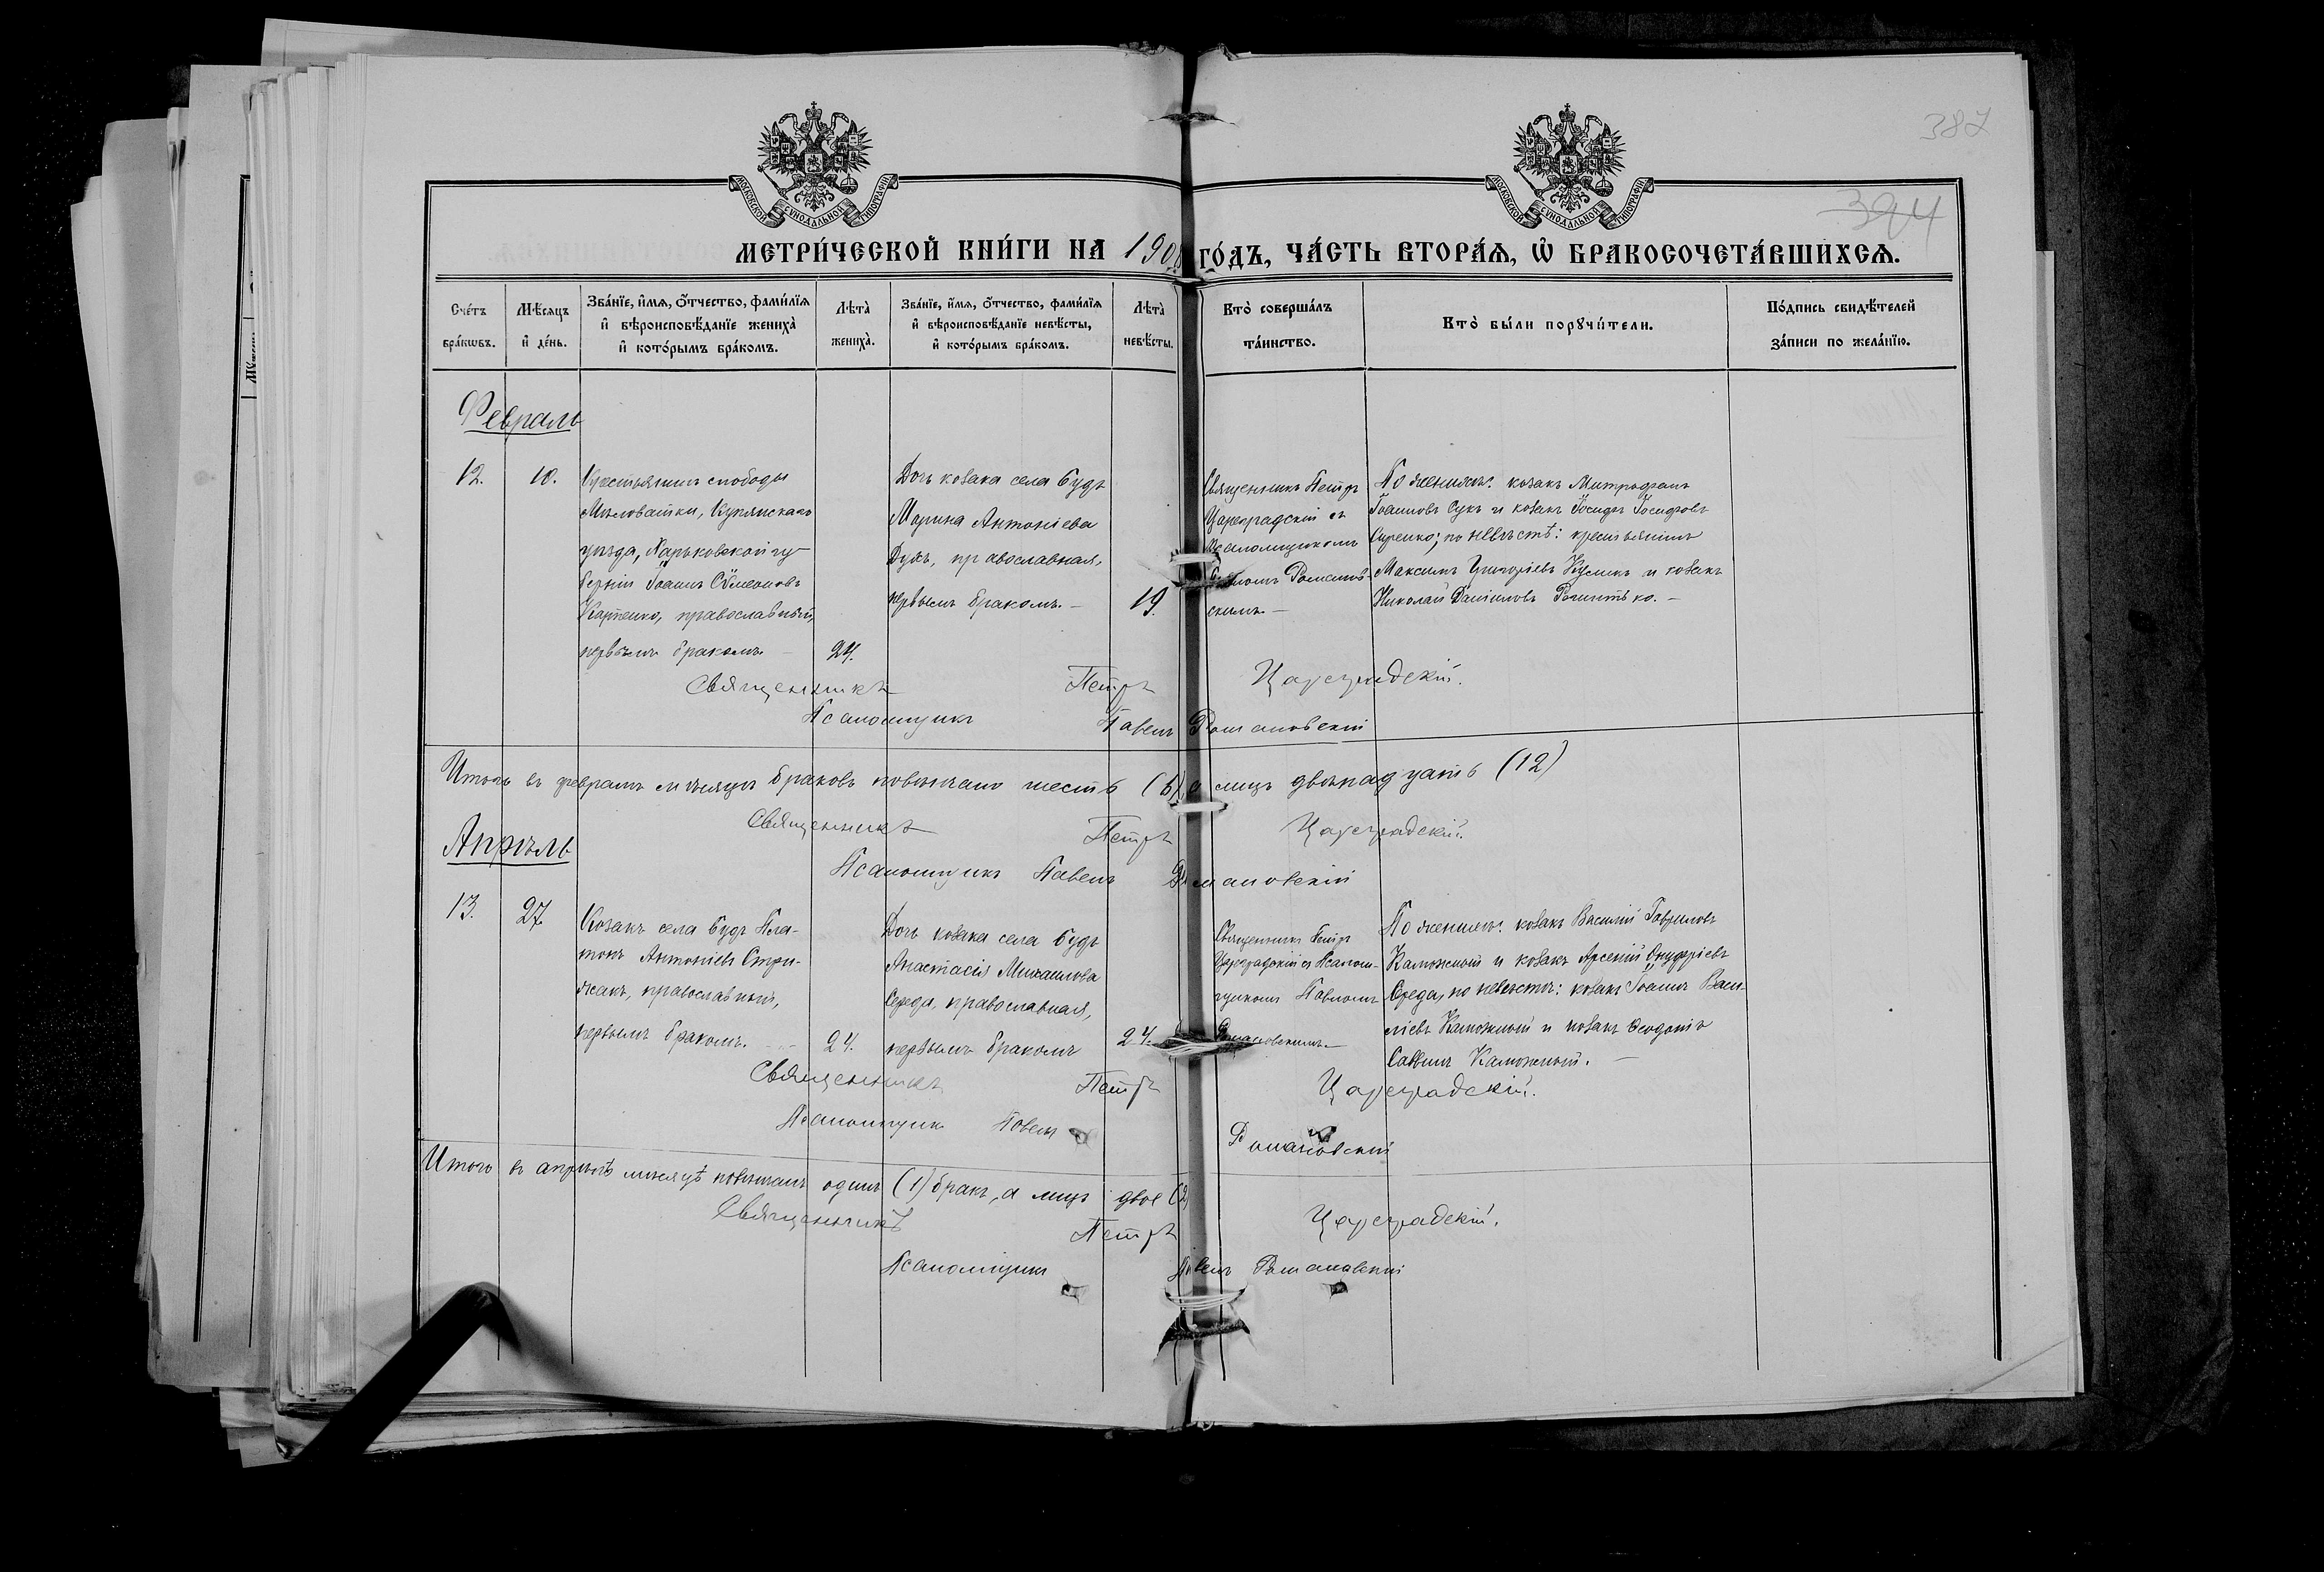 387
394
МОСКОВСКОЙ СѴНОДАЛЬНОЙ ТИПОГРАФІИ
МОСКОВСКОЙ СѴНОДАЛЬНОЙ ТИПОГРАФІИ
МЕТРИ́ЧЕСКОЙ КНИ́ГИ НА 190 ГО́ДЪ, ЧА́СТЬ ВТОРА́Ѧ, Ѽ БРАКОСОЧЕТА́ВШИХСѦ.
Сче́тъ бра́кѡвъ.
Мѣ́сяцъ и҆ де́нь.
Зва́нїе, и҆́мѧ, ѻ҆́тчество, фами́лїѧ
и҆ вѣроисповѣ́данїе жениха̀
и҆ кото́рымъ бра́комъ.
Лѣта̀ жениха̀.
Зва́нїе, и҆́мѧ, ѻ҆́тчество, фами́лїѧ
и҆ вѣроисповѣ́данїе невѣ́сты,
и҆ кото́рымъ бра́комъ.
Лѣта̀ невѣ́сты.
Кто̀ соверша́лъ
та́инство.
Кто̀ бы́ли порꙋчи́тели.
По́дпись свидѣ́телей
за́писи по жела́нїю.
Февраль
12.
10.
Крестьянинъ слободы
Мѣловатки, Купянскаго
уѣзда, Харьковской гу-
берніи Іоаннъ Сѵмеоновъ
Карпенко, православный,
первымъ бракомъ. –
24.
Дочь козака села Будъ
Марина Антоніева
православная,
первымъ бракомъ. –
19.
Священникъ Петръ
Цареградскій съ
псаломщикомъ
Романов-
скимъ. –
По женихѣ: козакъ Митрофанъ
Іоанновъ Сукъ и козакъ Іосифъ Іосифовъ
по невѣстѣ: крестьянинъ
Максимъ Григоріевъ и козакъ
Николай Даніиловъ
Священникъ Петръ Цареградскій.
Псаломщикъ Павелъ Романовскій
Итого въ февралѣ мѣсяцѣ браковъ повѣнчано шесть (6), а лицъ двѣнадцать (12)
Священникъ Петръ Цареградскій.
Псаломщикъ Павелъ Романовскій
Апрѣль
13.
27.
Козакъ села Будъ Пла-
тонъ Антоніевъ Стри-
жакъ, православный,
первымъ бракомъ. –
24.
Дочь козака села Будъ
Анастасія Михаилова
Середа, православная,
первымъ бракомъ
24.
Священникъ Петръ
Цареградскій съ псалом-
щикомъ Павломъ
Романовскимъ. –
По женихѣ: козакъ Василій Гавриловъ
Каложный и козакъ Арсеній Онуфріевъ
Середа, по невѣстѣ: козакъ Іоаннъ Васи-
ліевъ Каложный и козакъ Ѳеодотъ
Саввинъ Каложный. –
Священникъ Петръ Цареградскій.
Псаломщикъ Павелъ Романовскій
Итого въ апрѣлѣ мѣсяцѣ повѣнчанъ одинъ (1) бракъ, а лицъ двое (2)
Священникъ Петръ Цареградскій.
Псаломщикъ Павелъ Романовскій